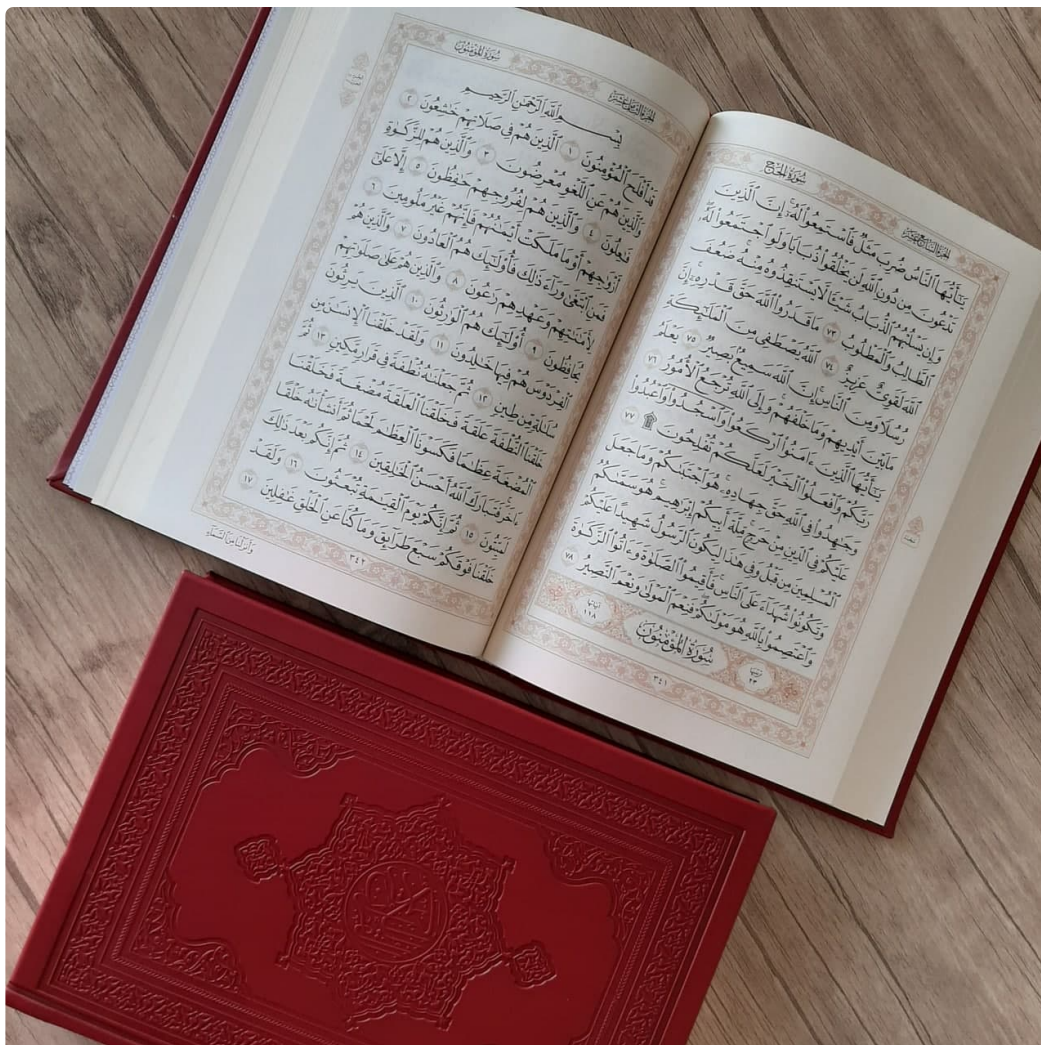 الجُزْءُ السَّابِعَ عَشَرَ
سُورَةُ الحَجِّ
يَٰٓأَيُّهَا ٱلنَّاسُ ضُرِبَ مَثَلٌ فَٱسْتَمِعُوا۟ لَهُۥٓ إِنَّ ٱلَّذِينَ
تَدْعُونَ مِن دُونِ ٱللَّهِ لَن يَخْلُقُوا۟ ذُبَابًا وَلَوِ ٱجْتَمَعُوا۟ لَهُۥ
وَإِن يَسْلُبْهُمُ ٱلذُّبَابُ شَيْـًٔا لَّا يَسْتَنقِذُوهُ مِنْهُ ضَعُفَ
ٱلطَّالِبُ وَٱلْمَطْلُوبُ ٧٣ مَا قَدَرُوا۟ ٱللَّهَ حَقَّ قَدْرِهِۦٓ إِنَّ
ٱللَّهَ لَقَوِىٌّ عَزِيزٌ ٧٤ ٱللَّهُ يَصْطَفِى مِنَ ٱلْمَلَٰٓئِكَةِ
رُسُلًا وَمِنَ ٱلنَّاسِ إِنَّ ٱللَّهَ سَمِيعٌۢ بَصِيرٌ ٧٥ يَعْلَمُ
مَا بَيْنَ أَيْدِيهِمْ وَمَا خَلْفَهُمْ وَإِلَى ٱللَّهِ تُرْجَعُ ٱلْأُمُورُ ٧٦
يَٰٓأَيُّهَا ٱلَّذِينَ ءَامَنُوا۟ ٱرْكَعُوا۟ وَٱسْجُدُوا۟ وَٱعْبُدُوا۟
رَبَّكُمْ وَٱفْعَلُوا۟ ٱلْخَيْرَ لَعَلَّكُمْ تُفْلِحُونَ ۩ ٧٧
وَجَٰهِدُوا۟ فِى ٱللَّهِ حَقَّ جِهَادِهِۦ هُوَ ٱجْتَبَىٰكُمْ وَمَا جَعَلَ
عَلَيْكُمْ فِى ٱلدِّينِ مِنْ حَرَجٍ مِّلَّةَ أَبِيكُمْ إِبْرَٰهِيمَ هُوَ سَمَّىٰكُمُ
ٱلْمُسْلِمِينَ مِن قَبْلُ وَفِى هَٰذَا لِيَكُونَ ٱلرَّسُولُ شَهِيدًا عَلَيْكُمْ
وَتَكُونُوا۟ شُهَدَآءَ عَلَى ٱلنَّاسِ فَأَقِيمُوا۟ ٱلصَّلَوٰةَ وَءَاتُوا۟ ٱلزَّكَوٰةَ
وَٱعْتَصِمُوا۟ بِٱللَّهِ هُوَ مَوْلَىٰكُمْ فَنِعْمَ ٱلْمَوْلَىٰ وَنِعْمَ ٱلنَّصِيرُ ٧٨
ترتيبها ٢٣ سُورَةُ المُؤْمِنُونَ آياتها ١١٨
٣٤١
الجُزْءُ الثَّامِنَ عَشَرَ
سُورَةُ المُؤْمِنُونَ
بِسْمِ ٱللَّهِ ٱلرَّحْمَٰنِ ٱلرَّحِيمِ
قَدْ أَفْلَحَ ٱلْمُؤْمِنُونَ ١ ٱلَّذِينَ هُمْ فِى صَلَاتِهِمْ خَٰشِعُونَ ٢
وَٱلَّذِينَ هُمْ عَنِ ٱللَّغْوِ مُعْرِضُونَ ٣ وَٱلَّذِينَ هُمْ لِلزَّكَوٰةِ
فَٰعِلُونَ ٤ وَٱلَّذِينَ هُمْ لِفُرُوجِهِمْ حَٰفِظُونَ ٥ إِلَّا عَلَىٰٓ
أَزْوَٰجِهِمْ أَوْ مَا مَلَكَتْ أَيْمَٰنُهُمْ فَإِنَّهُمْ غَيْرُ مَلُومِينَ ٦
فَمَنِ ٱبْتَغَىٰ وَرَآءَ ذَٰلِكَ فَأُو۟لَٰٓئِكَ هُمُ ٱلْعَادُونَ ٧ وَٱلَّذِينَ هُمْ
لِأَمَٰنَٰتِهِمْ وَعَهْدِهِمْ رَٰعُونَ ٨ وَٱلَّذِينَ هُمْ عَلَىٰ صَلَوَٰتِهِمْ
يُحَافِظُونَ ٩ أُو۟لَٰٓئِكَ هُمُ ٱلْوَٰرِثُونَ ١٠ ٱلَّذِينَ يَرِثُونَ
ٱلْفِرْدَوْسَ هُمْ فِيهَا خَٰلِدُونَ ١١ وَلَقَدْ خَلَقْنَا ٱلْإِنسَٰنَ مِن
سُلَٰلَةٍ مِّن طِينٍ ١٢ ثُمَّ جَعَلْنَٰهُ نُطْفَةً فِى قَرَارٍ مَّكِينٍ ١٣ ثُمَّ
خَلَقْنَا ٱلنُّطْفَةَ عَلَقَةً فَخَلَقْنَا ٱلْعَلَقَةَ مُضْغَةً فَخَلَقْنَا
ٱلْمُضْغَةَ عِظَٰمًا فَكَسَوْنَا ٱلْعِظَٰمَ لَحْمًا ثُمَّ أَنشَأْنَٰهُ خَلْقًا
ءَاخَرَ فَتَبَارَكَ ٱللَّهُ أَحْسَنُ ٱلْخَٰلِقِينَ ١٤ ثُمَّ إِنَّكُم بَعْدَ ذَٰلِكَ
لَمَيِّتُونَ ١٥ ثُمَّ إِنَّكُمْ يَوْمَ ٱلْقِيَٰمَةِ تُبْعَثُونَ ١٦ وَلَقَدْ
خَلَقْنَا فَوْقَكُمْ سَبْعَ طَرَآئِقَ وَمَا كُنَّا عَنِ ٱلْخَلْقِ غَٰفِلِينَ ١٧
٣٤٢
وَأَنزَلْنَا مِنَ السَّمَآءِ